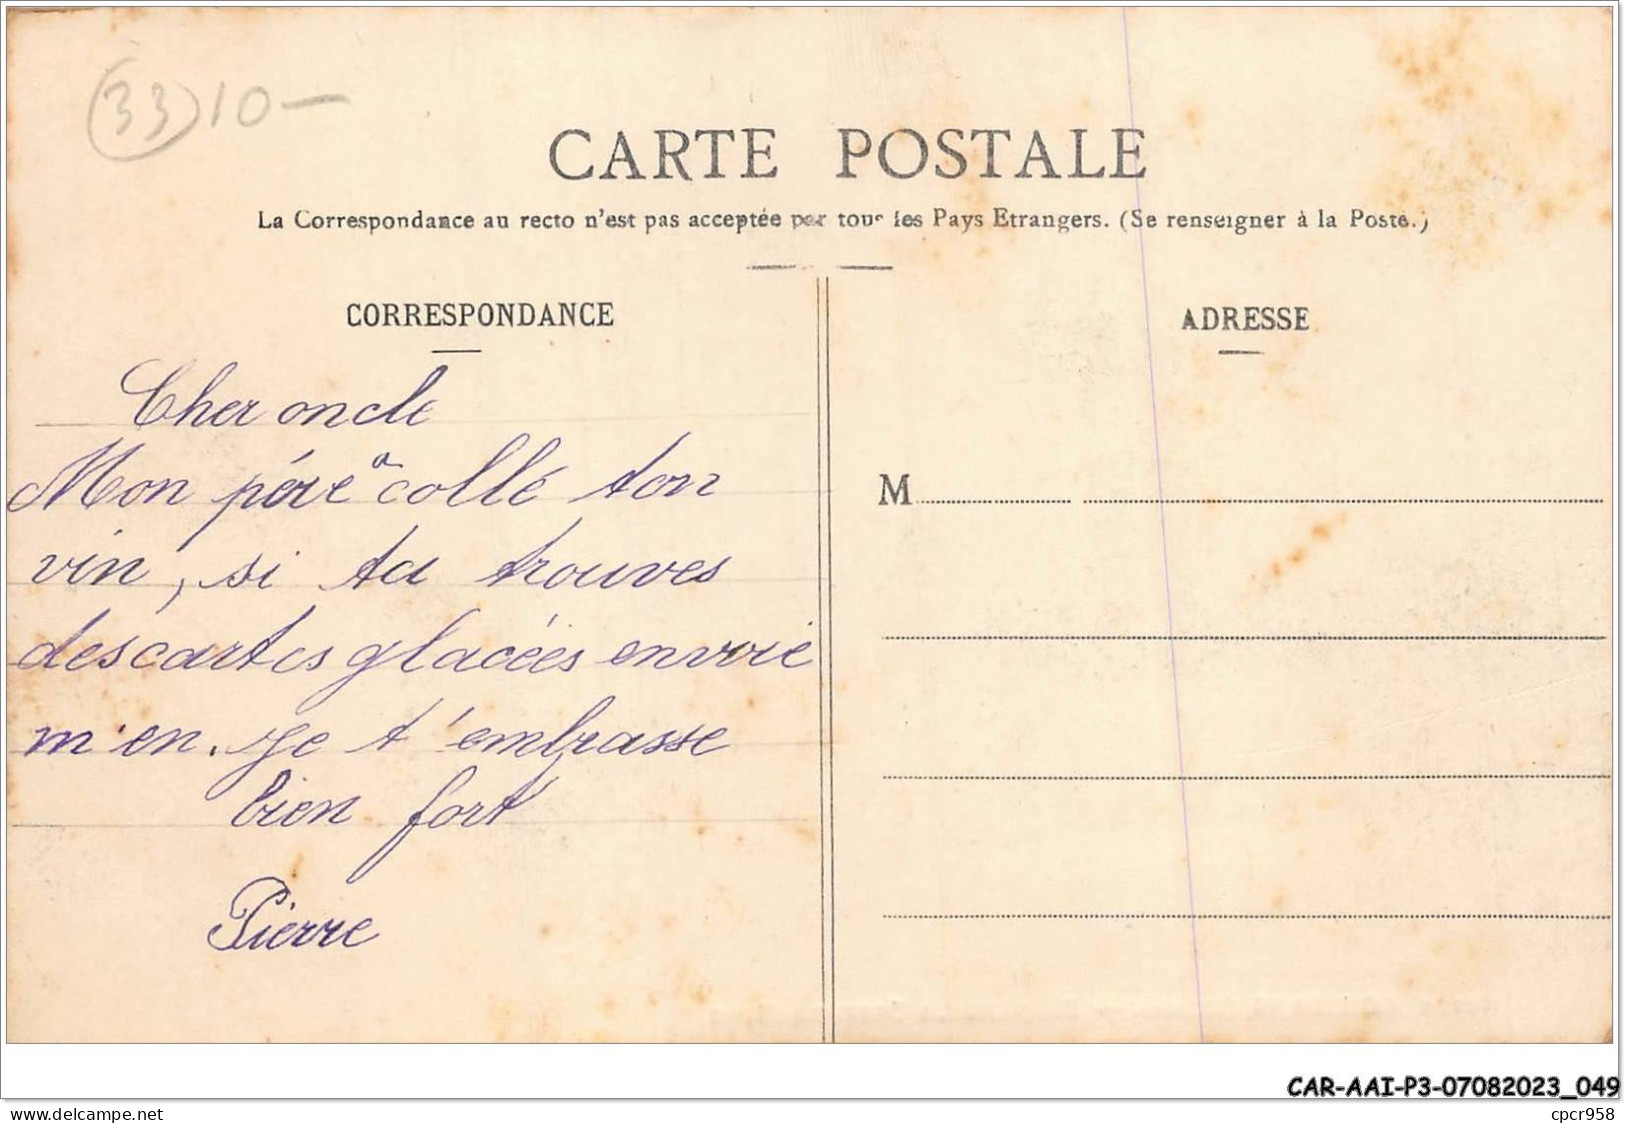 (33) 10 —
CARTE POSTALE
La Correspondance au recto n'est pas acceptée par tous les Pays Etrangers. (Se renseigner à la Poste.)
CORRESPONDANCE
Cher oncle
Mon père a collé ton
vin, si tu trouves
des cartes glacées envoie
m'en. Je t'embrasse
bien fort
Pierre
ADRESSE
M
CAR-AAI-P3-07082023_049
www.delcampe.net
cpcr958